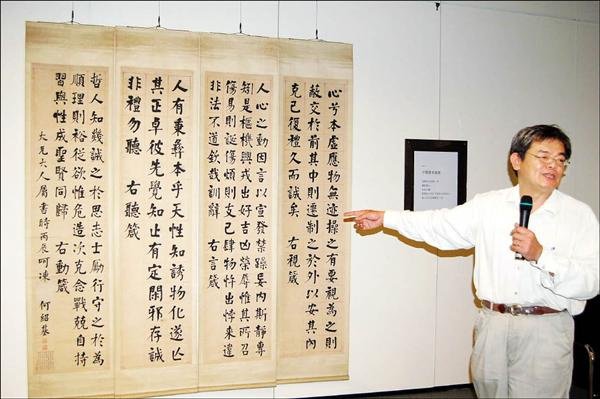 心兮本虛應物無迹操之有要視為之則
蔽交於前其中則遷制之於外以安其內
克己復禮久而誠矣 右視箴
人心之動因言以宣發禁躁妄內斯靜專
矧是樞機興戎出好吉凶榮辱惟其所召
傷易則誕傷煩則支己肆物忤出悖来違
非法不道欽哉訓辭 右言箴
人有秉彝本乎天性知誘物化遂亡
其正卓彼先覺知止有定閑邪存誠
非禮勿聽 右聽箴
哲人知幾誠之於思志士勵行守之於為
順理則裕從欲惟危造次克念戰兢自持
習與性成聖賢同歸 右動箴
大人屬書時丙辰呵凍 何紹基